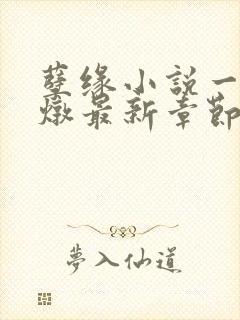 孽缘小説一
燉最新章節
夢入仙道